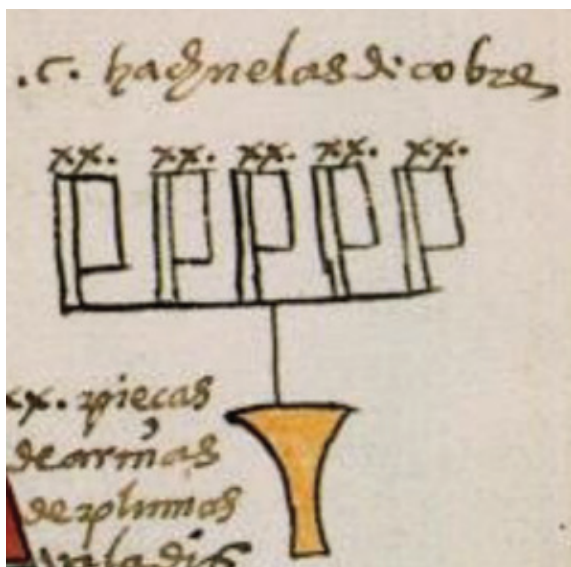 .c. hachuelas de cobre
xx. xx. xx. xx. xx.
xx. pieças
de armas
de plumas
valadis